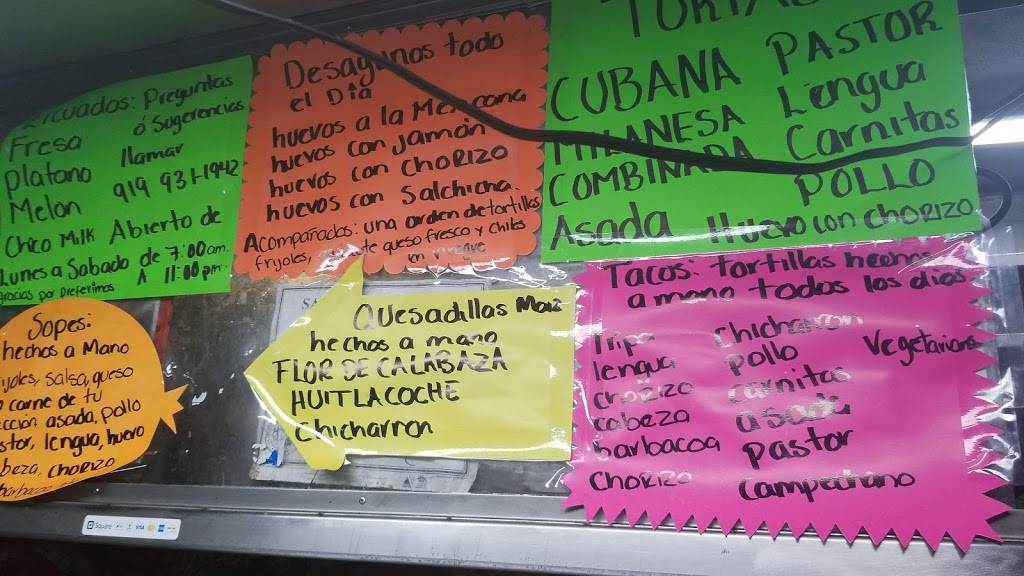 Licuados: Preguntas
ó Sugerencias
Fresa
Platano
Melon
Choco Milk
llamar
919 931-1942
Abierto de
Lunes a Sabado de 7:00am.
A 11:00pm
gracias por preferirnos
Desayunos todo
el Día
huevos a la Mexicana
huevos con jamón
huevos con CHORIZO
huevos con Salchicha.
Acompañados: una orden de tortillas
frijoles, queso fresco y chiles
en vinagre
TORTAS
CUBANA
MILANESA
COMBINADA
Asada
PASTOR
Lengua
Carnitas
POLLO
Huevo con CHORIZO
Sopes:
hechos a Mano
salsa, queso
o carne de tu
asada, pollo
lengua, huevo
CHORIZO
Quesadillas Maiz
hechos a mano
FLOR DE CALABAZA
HUITLACOCHE
chicharron
Tacos: tortillas hechas
a mano todos los dias
Tripa
lengua
chorizo
cabeza
barbacoa
CHORIZO
chicharron
pollo
carnitas
asada
pastor
campechano
vegetariano
Square
VISA